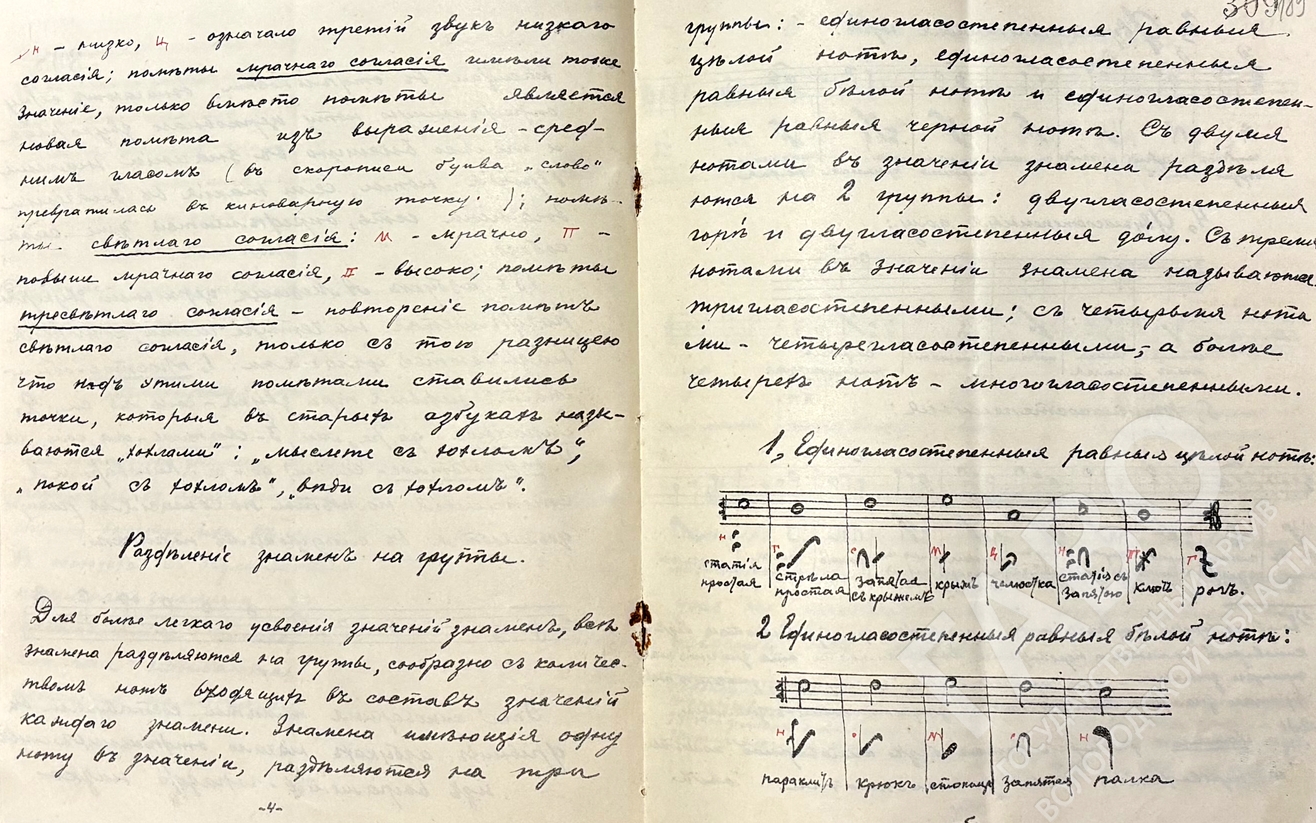 н - низко, ц - означало третій звукъ низкаго
согласія; помѣты мрачнаго согласія имѣли тоже
значеніе, только вмѣсто помѣты является
новая помѣта изъ выраженія - сред-
нимъ гласомъ (въ скорописи буква „слово"
превратилась въ киноварную точку·); помѣ-
ты свѣтлаго согласія: м - мрачно, п -
повыше мрачнаго согласія, в - высоко; помѣты
тресвѣтлаго согласія - повтореніе помѣтъ
свѣтлаго согласія, только съ тою разницею
что надъ этими помѣтами ставились
точки, которыя въ старыхъ азбукахъ назы-
ваются „хохлами": „мыслете съ хохломъ",
„покой съ хохломъ", „вѣди съ хохломъ".
Раздѣленіе знаменъ на группы.
Для болѣе легкаго усвоенія значеній знаменъ, всѣ
знамена раздѣляются на группы, сообразно съ количес-
твомъ нотъ входящихъ въ составъ значеній
каждаго знамени. Знамена имѣющія одну
ноту въ значеніи, раздѣляются на три
-4-
309
189
группы: - единогласостепенныя равныя
цѣлой нотѣ, единогласостепенныя
равныя бѣлой нотѣ и единогласостепен-
ныя равныя черной нотѣ. Съ двумя
нотами въ значеніи знамена раздѣля
ются на 2 группы: двугласостепенныя
горѣ и двугласостепенныя до́лу. Съ тремя
нотами въ значеніи знамена называются
тригласостепенными; съ четырьмя нота
ми - четырегласостепенными, - а болѣе
четырехъ нотъ - многогласостепенными.
1, Единогласостепенныя равныя цѣлой нотѣ:
н г с м ц н п г
статія простая стрѣла простая запятая съ крыжемъ крыжъ челюстка статія съ запятою ключъ рогъ.
2 Единогласостепенныя равныя бѣлой нотѣ:
н с м с н
параклитъ крюкъ стопица запятая палка
ГАВО
ГОСУДАРСТВЕННЫЙ АРХИВ
ВОЛОГОДСКОЙ ОБЛАСТИ